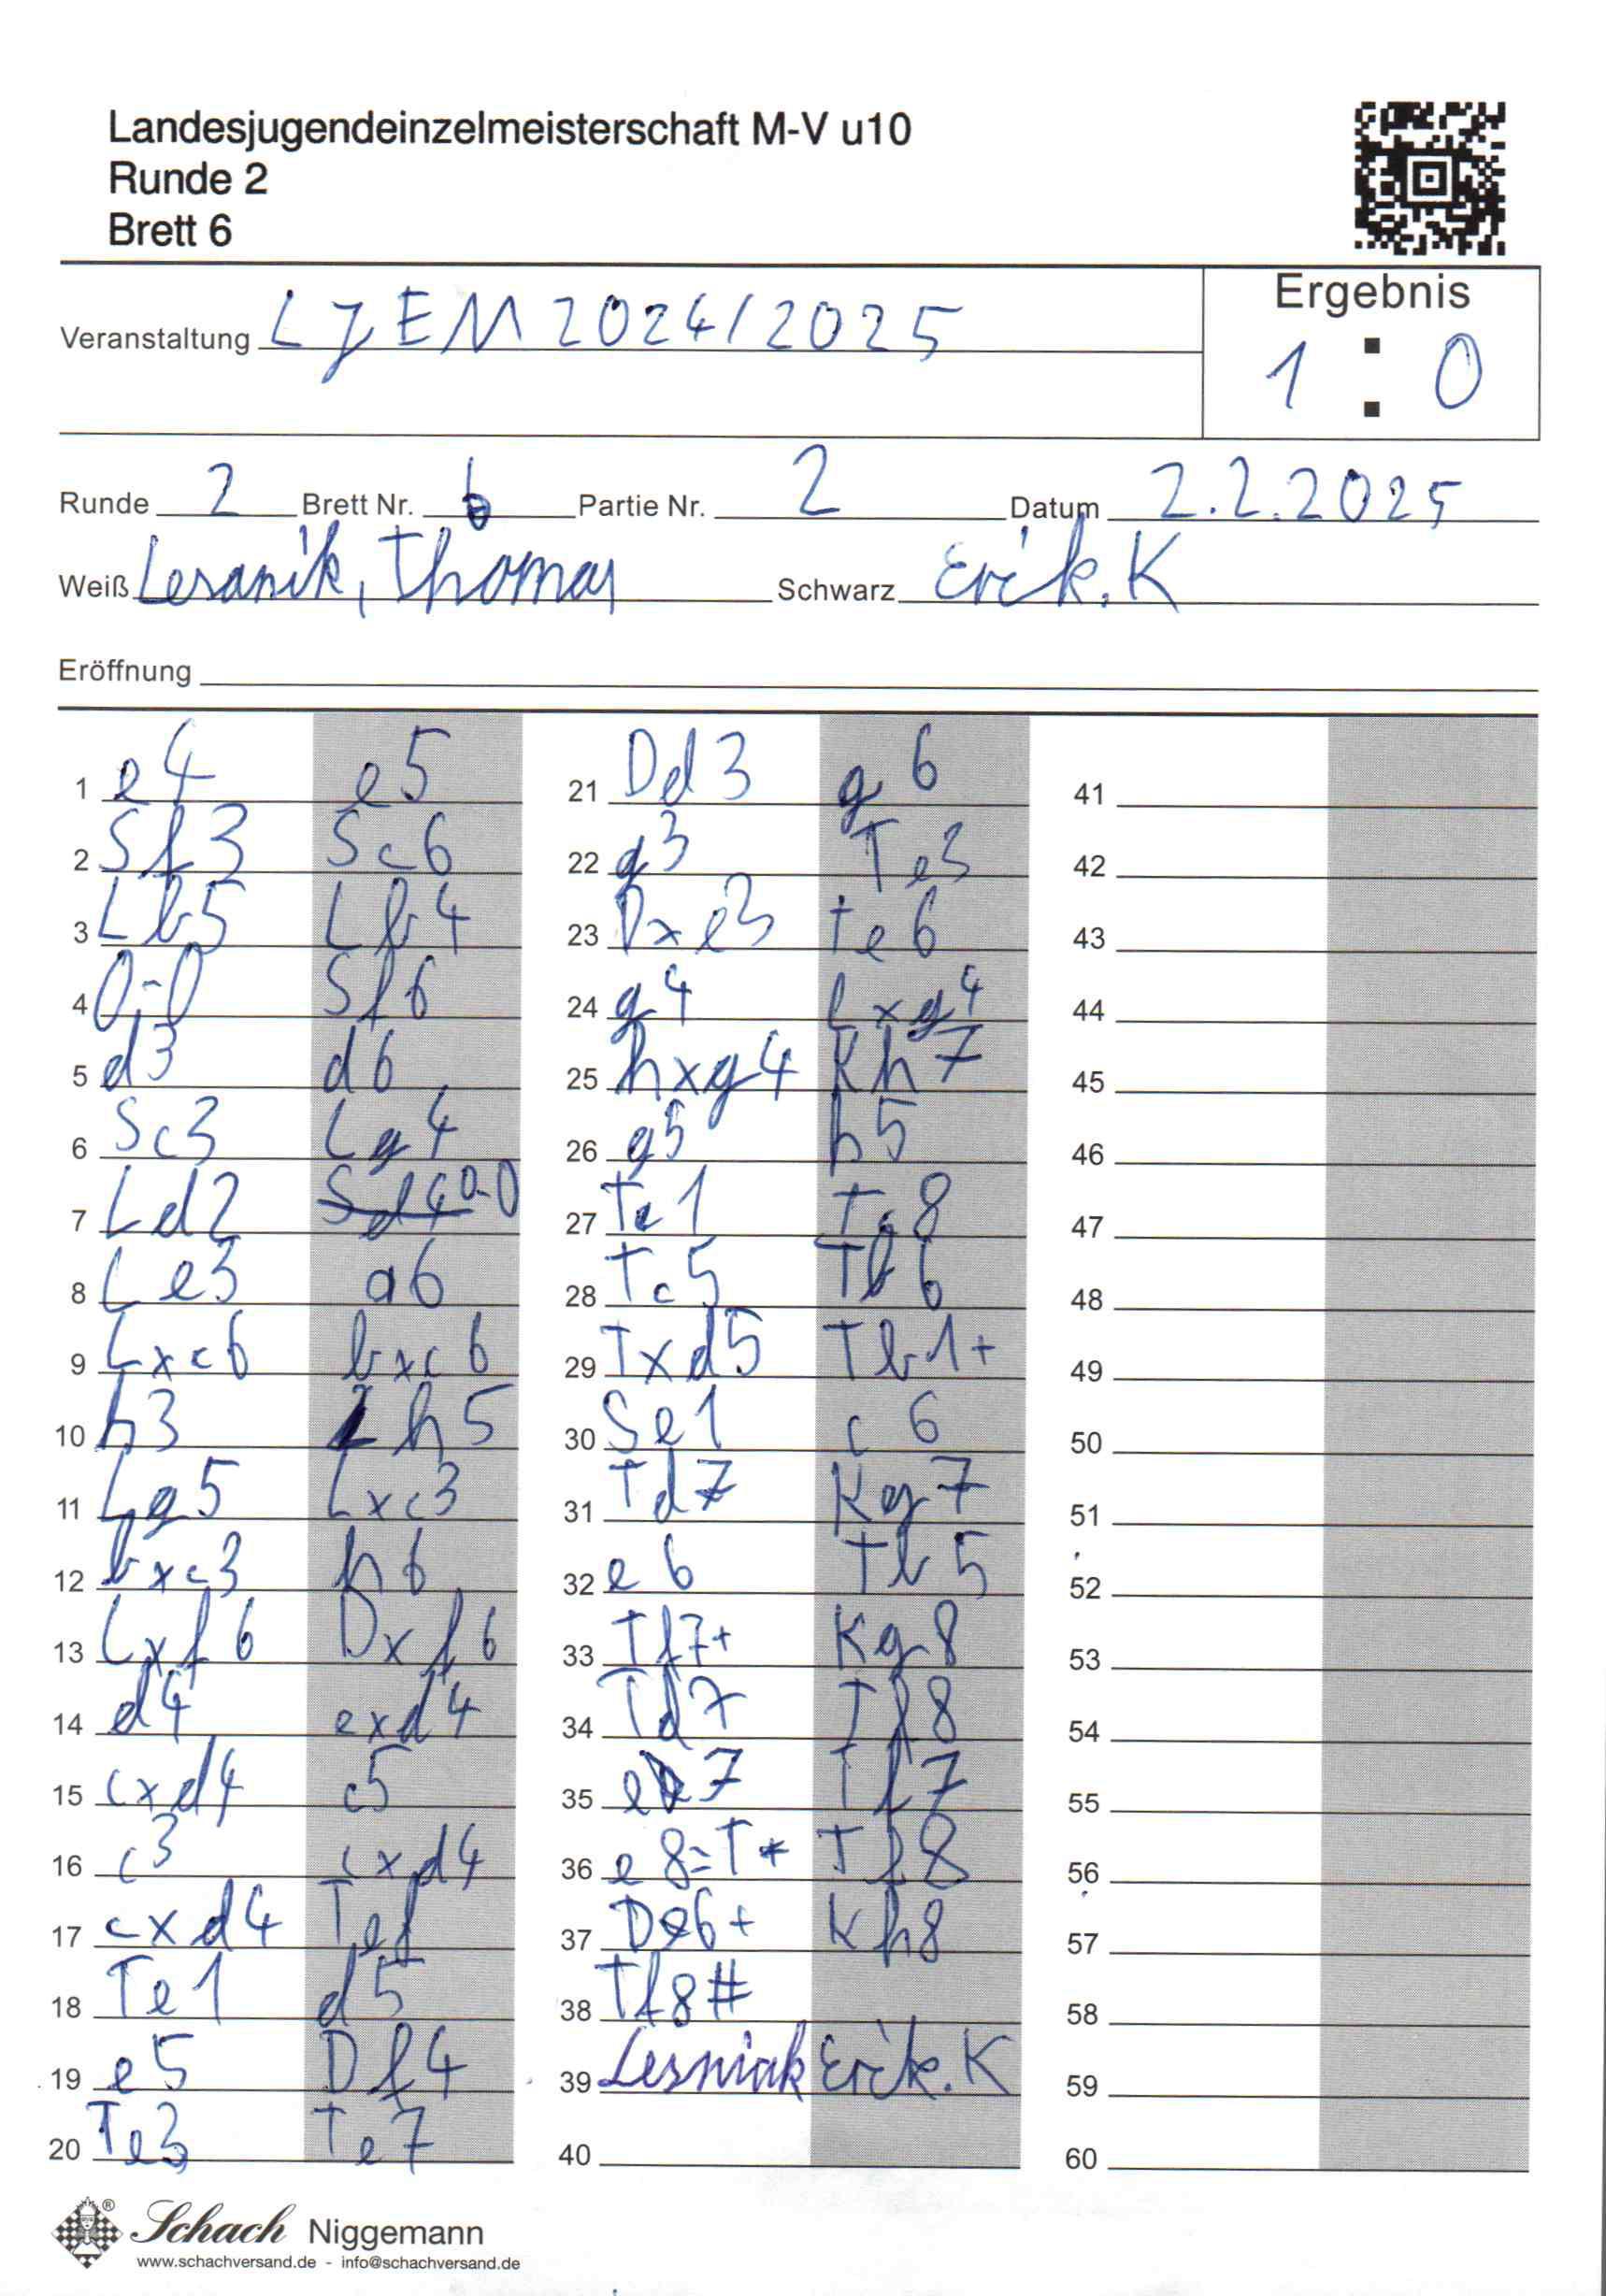 Landesjugendeinzelmeisterschaft M-V u10
Runde 2
Brett 6
Ergebnis
1 : 0
Veranstaltung LJEM 2024/2025
Runde 2 Brett Nr. 6 Partie Nr. 2 Datum 2.2.2025
Weiß Lesanik, Thomas Schwarz Erik.K
Eröffnung
1 e4 e5
2 Sf3 Sc6
3 Lb5 Lb4
4 0-0 Sf6
5 d3 d6
6 Sc3 Lg4
7 Ld2 Sd4 0-0
8 Le3 a6
9 Lxc6 bxc6
10 h3 Lh5
11 Lg5 Lxc3
12 bxc3 h6
13 Lxf6 Dxf6
14 d4 exd4
15 cxd4 c5
16 c3 cxd4
17 cxd4 Tef
18 Te1 d5
19 e5 Df4
20 Te3 Te7
21 Dd3 g6
22 g3 Te3
23 Dxe3 te6
24 g4 Lxg4
25 hxg4 Kh7
26 g5 h5
27 Tc1 Te8
28 Tc5 Tb6
29 Txd5 Tb1+
30 Se1 c6
31 Td7 Kg7
32 e6 Tb5
33 Tf7+ Kg8
34 Td7 Tf8
35 e7 Tf7
36 e8=T+ Tf8
37 De6+ Kh8
38 Tf8#
39 Lesniak Erik.K
40
41
42
43
44
45
46
47
48
49
50
51
52
53
54
55
56
57
58
59
60
Schach Niggemann
®
www.schachversand.de - info@schachversand.de